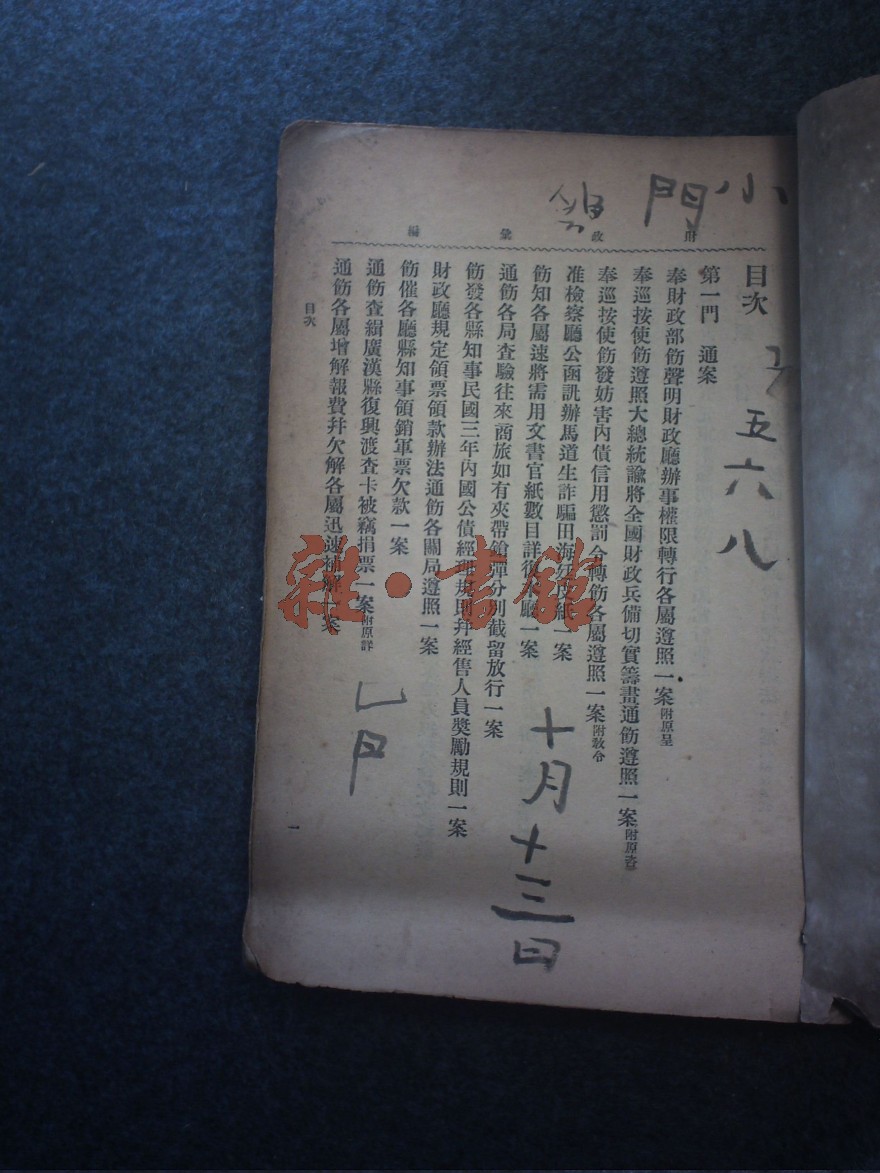 財政彙編
目次
第一門　通案
奉財政部飭聲明財政廳辦事權限轉行各屬遵照一案附原呈
奉巡按使飭遵照大總統諭將全國財政兵備切實籌畫通飭遵照一案附原
奉巡按使飭發妨害內債信用懲罰令轉飭各屬遵照一案附教令
准檢察廳公函訊辦馬道生詐騙田海 一案
飭知各屬速將需用文書官紙數目詳 廳一案
通飭各局查驗往來商旅如有夾帶鎗彈分別截留放行一案
飭發各縣知事民國三年內國公債經理規則幷經售人員獎勵規則一案
財政廳規定領票領款辦法通飭各關局遵照一案
飭催各廳縣知事領銷軍票欠款一案
通飭查緝廣漢縣復興渡查卡被竊捐票一案附原詳
通飭各屬增解報費幷欠解各屬迅速補解一案
目次
一
小門
五六八
十月十三日
雜·書館